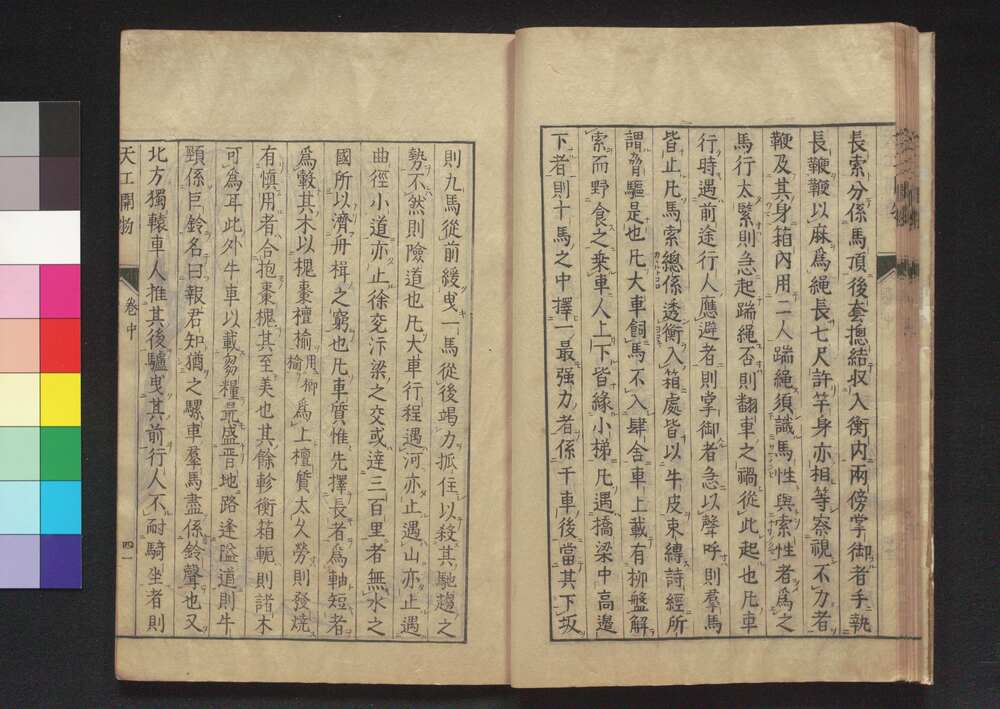 長索分係馬頂後套總結収入衡内兩傍掌御者手執
長鞭鞭以麻為繩長七尺許竿身亦相等察視不力者
鞭及其身箱内用二人踹繩須識馬性與索性者為之
馬行太緊則急起踹繩否則翻車之禍從此起也凡車
行時遇前途行人應避者則掌御者急以聲呼則羣馬
皆止凡馬索總係透衡入箱處皆以牛皮束縛詩經所
謂脅驅是也凡大車飼馬不入肆舍車上載有柳盤解
索而野食之乗車人上下皆緣小梯凡遇橋梁中高邊
下者則十馬之中擇一最强力者係于車後當其下坂
則九馬從前緩曳一馬從後竭力抓住以殺其馳趨之
勢不然則險道也凡大車行程遇河亦止遇山亦止遇
曲徑小道亦止徐兗汴梁之交或達三百里者無水之
國所以濟舟楫之窮也凡車質惟先擇長者為軸短者
為轂其木以槐棗檀榆用榔榆為上檀質太乆勞則發燒
有慎用者合抱棗槐其至美也其餘軫衡箱軛則諸木
可為耳此外牛車以載芻糧最盛晋地路逢隘道則牛
頸係巨鈴名曰報君知猶之騾車羣馬盡係鈴聲也又
北方獨轅車人推其後驢曳其前行人不耐騎坐者則
天工開物 卷中 四一